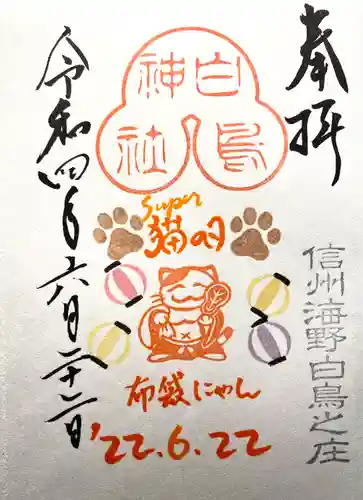 奉拝
信州海野白鳥之庄
白鳥神社
Super
猫の日
布袋にゃん
'22.6.22
令和四年六月二十二日